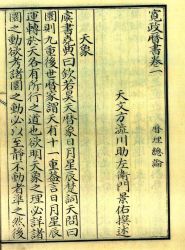 寛政暦書卷一
暦理總論
天文方澁川助左衛門景佑撰述
天象
虞書堯典曰欽若昊天暦象日月星辰楚詞天問曰
圜則九重後世暦家謂天有十一重蓋言日月星辰
運轉於天各有所行之道也欲明天象之理必詳諸
圜之動欲考諸圜之動必以至靜不動者準之然後